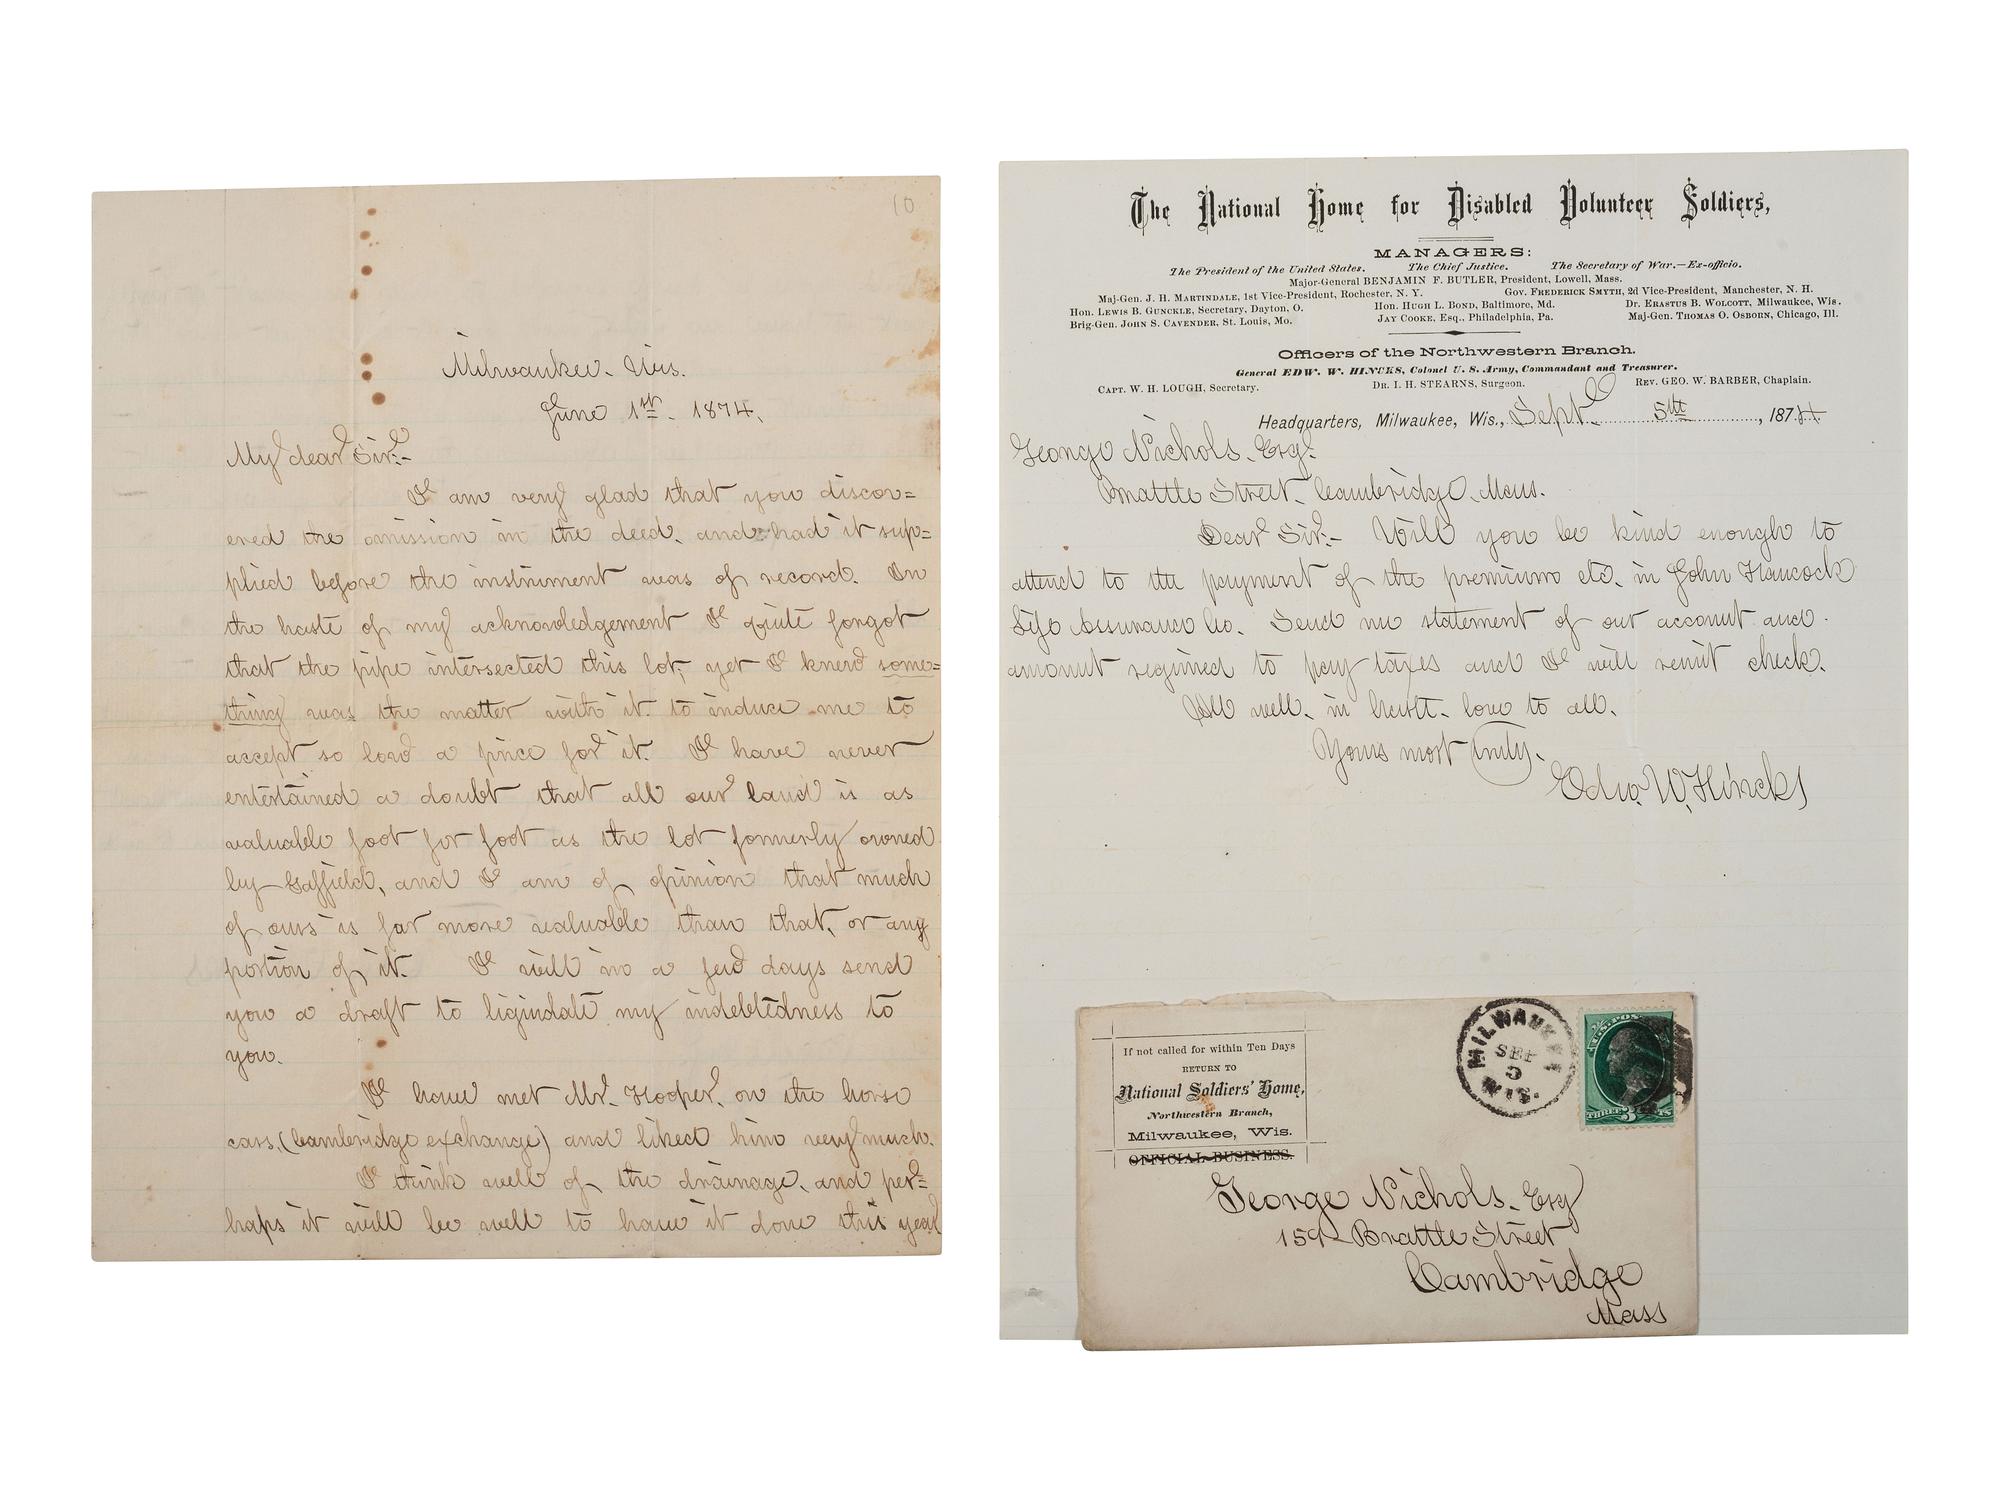 10
Milwaukee. Wis.
June 1st. 1874.
My dear Sir:-
I am very glad that you discov=
ered the omission in the deed, and had it sup=
plied before the instrument was of record. In
the haste of my acknowledgement I quite forgot
that the pipe intersected this lot; yet I knew some=
thing was the matter with it to induce me to
accept so low a price for it. I have never
entertained a doubt that all our land is as
valuable foot for foot as the lot formerly owned
by Gaffield, and I am of opinion that much
of ours is far more valuable than that, or any
portion of it. I will in a few days send
you a draft to liquidate my indebtedness to
you.
I have met Mr. Hooper, on the horse
cars, (Cambridge exchange) and liked him very much.
I think well of the drainage, and per=
haps it will be well to have it done this year
The National Home for Disabled Volunteer Soldiers,
MANAGERS:
The President of the United States. The Chief Justice. The Secretary of War.—Ex-officio.
Major-General BENJAMIN F. BUTLER, President, Lowell, Mass.
Maj-Gen. J. H. MARTINDALE, 1st Vice-President, Rochester, N. Y. Gov. FREDERICK SMYTH, 2d Vice-President, Manchester, N. H.
Hon. LEWIS B. GUNCKLE, Secretary, Dayton, O. Hon. HUGH L. BOND, Baltimore, Md. Dr. ERASTUS B. WOLCOTT, Milwaukee, Wis.
Brig-Gen. JOHN S. CAVENDER, St. Louis, Mo. JAY COOKE, Esq., Philadelphia, Pa. Maj-Gen. THOMAS O. OSBORN, Chicago, Ill.
Officers of the Northwestern Branch.
General EDW. W. HINCKS, Colonel U. S. Army, Commandant and Treasurer.
CAPT. W. H. LOUGH, Secretary. DR. I. H. STEARNS, Surgeon. REV. GEO. W. BARBER, Chaplain.
Headquarters, Milwaukee, Wis., Sept. 5th, 1874
George Nichols. Esq.
Brattle Street. Cambridge. Mass.
Dear Sir:- Will you be kind enough to
attend to the payment of the premiums etc. in John Hancock
Life Assurance Co. Send me statement of our account and
amount required to pay taxes and I will remit check.
All well. in haste. love to all.
Yours most truly.
Edw. W. Hincks
If not called for within Ten Days
RETURN TO
National Soldiers' Home,
Northwestern Branch,
Milwaukee, Wis.
OFFICIAL BUSINESS.
MILWAUKEE
SEP
5
WIS.
U.S. POSTAGE
THREE 3 CENTS
George Nichols. Esq
159 Brattle Street
Cambridge
Mass